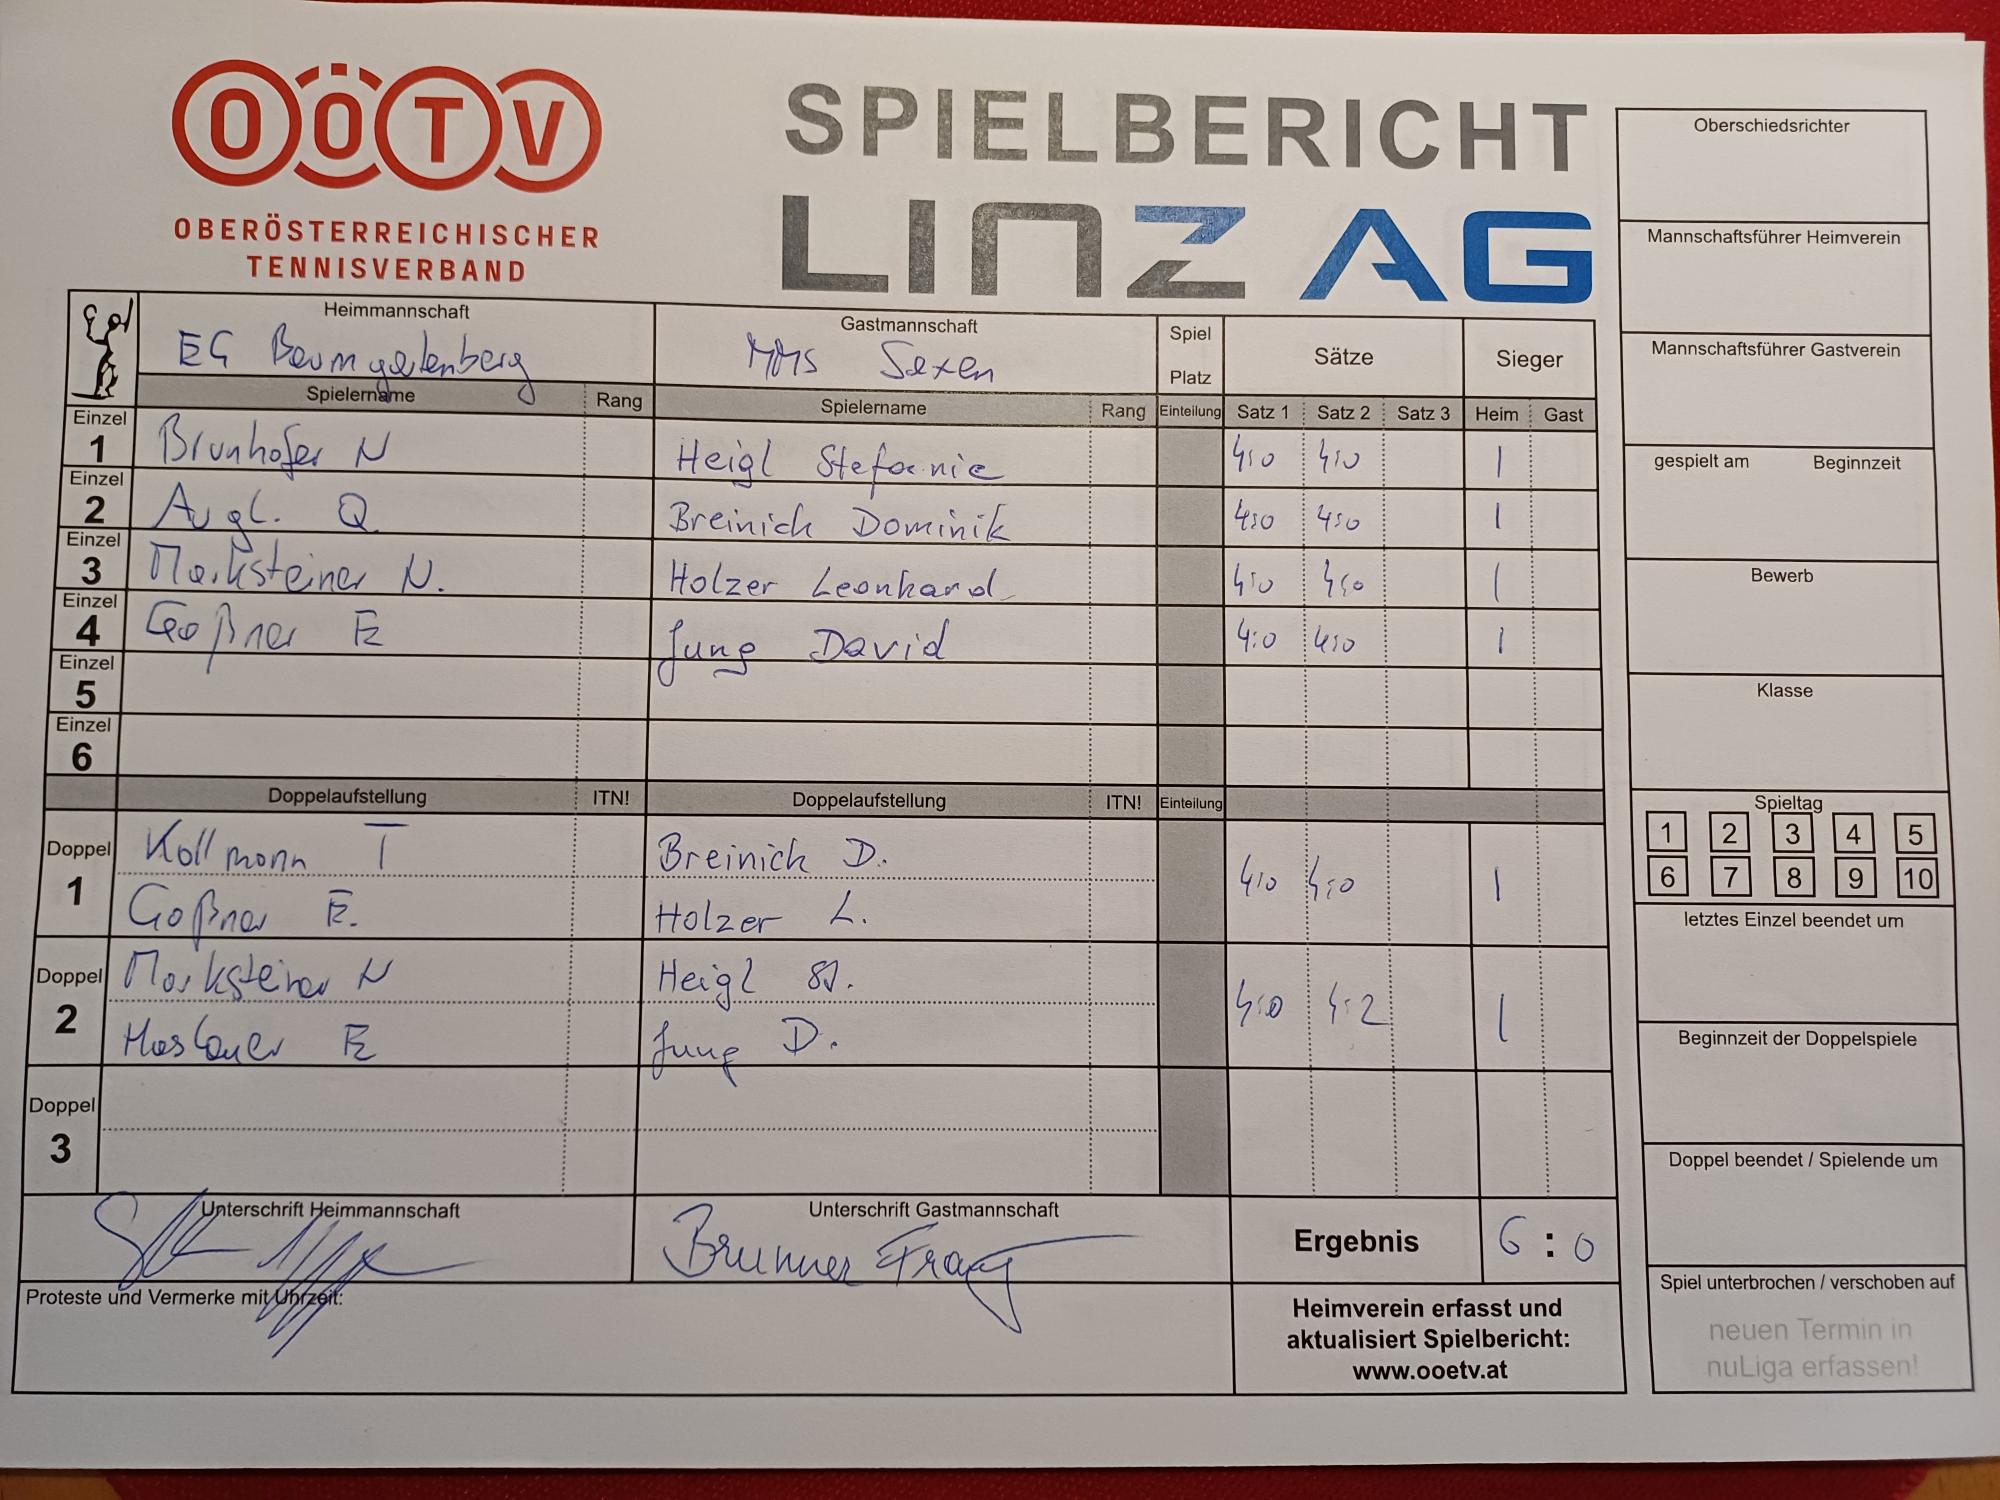 OÖTV
OBERÖSTERREICHISCHER
TENNISVERBAND
SPIELBERICHT
LINZ AG
Oberschiedsrichter
Mannschaftsführer Heimverein
Mannschaftsführer Gastverein
gespielt am Beginnzeit
Bewerb
Klasse
Spieltag
1 2 3 4 5
6 7 8 9 10
letztes Einzel beendet um
Beginnzeit der Doppelspiele
Doppel beendet / Spielende um
Spiel unterbrochen / verschoben auf
neuen Termin in
nuLiga erfassen!
Heimmannschaft Gastmannschaft Spiel Platz Sätze Sieger
EG Baumgartenberg MMS Saxen
Spielername Rang Spielername Rang Einteilung Satz 1 Satz 2 Satz 3 Heim Gast
Einzel 1 Brunhofer N Heigl Stefanie 4:0 4:0 1
Einzel 2 Augl. Q Breinich Dominik 4:0 4:0 1
Einzel 3 Marksteiner N. Holzer Leonhard 4:0 4:0 1
Einzel 4 Goßner E Jung David 4:0 4:0 1
Einzel 5
Einzel 6
Doppelaufstellung ITN! Doppelaufstellung ITN! Einteilung
Doppel 1 Kollmann T Breinich D. 4:0 4:0 1
Goßner E. Holzer L.
Doppel 2 Marksteiner N Heigl St. 4:0 4:2 1
E Jung D.
Doppel 3
Unterschrift Heimmannschaft Unterschrift Gastmannschaft Ergebnis 6:0
Brunner Franz
Proteste und Vermerke mit Uhrzeit:
Heimverein erfasst und
aktualisiert Spielbericht:
www.ooetv.at